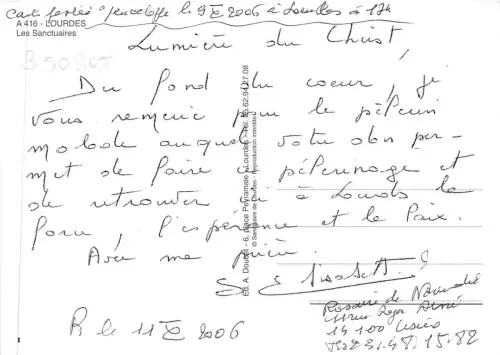 Carte postée s/enveloppe le 9 X 2006 à Lourdes à 17h
A 416 - LOURDES
Les Sanctuaires
Lumière du Christ,
Du fond du coeur, je
vous remercie pour le pèlerin
malade auquel votre don per-
met de faire ce pèlerinage et
de retrouver ici à Lourdes la
force, l'espérance et la Paix.
Avec ma prière.
S. Elisabeth
Rosaire de
14100 Lisieux
R le 11 X 2006
Ed. A. Doucet - 6, place Peyramale Lourdes - Tél. 05.62.94.27.08
© Sanctuaire de Lourdes - Reproduction interdite